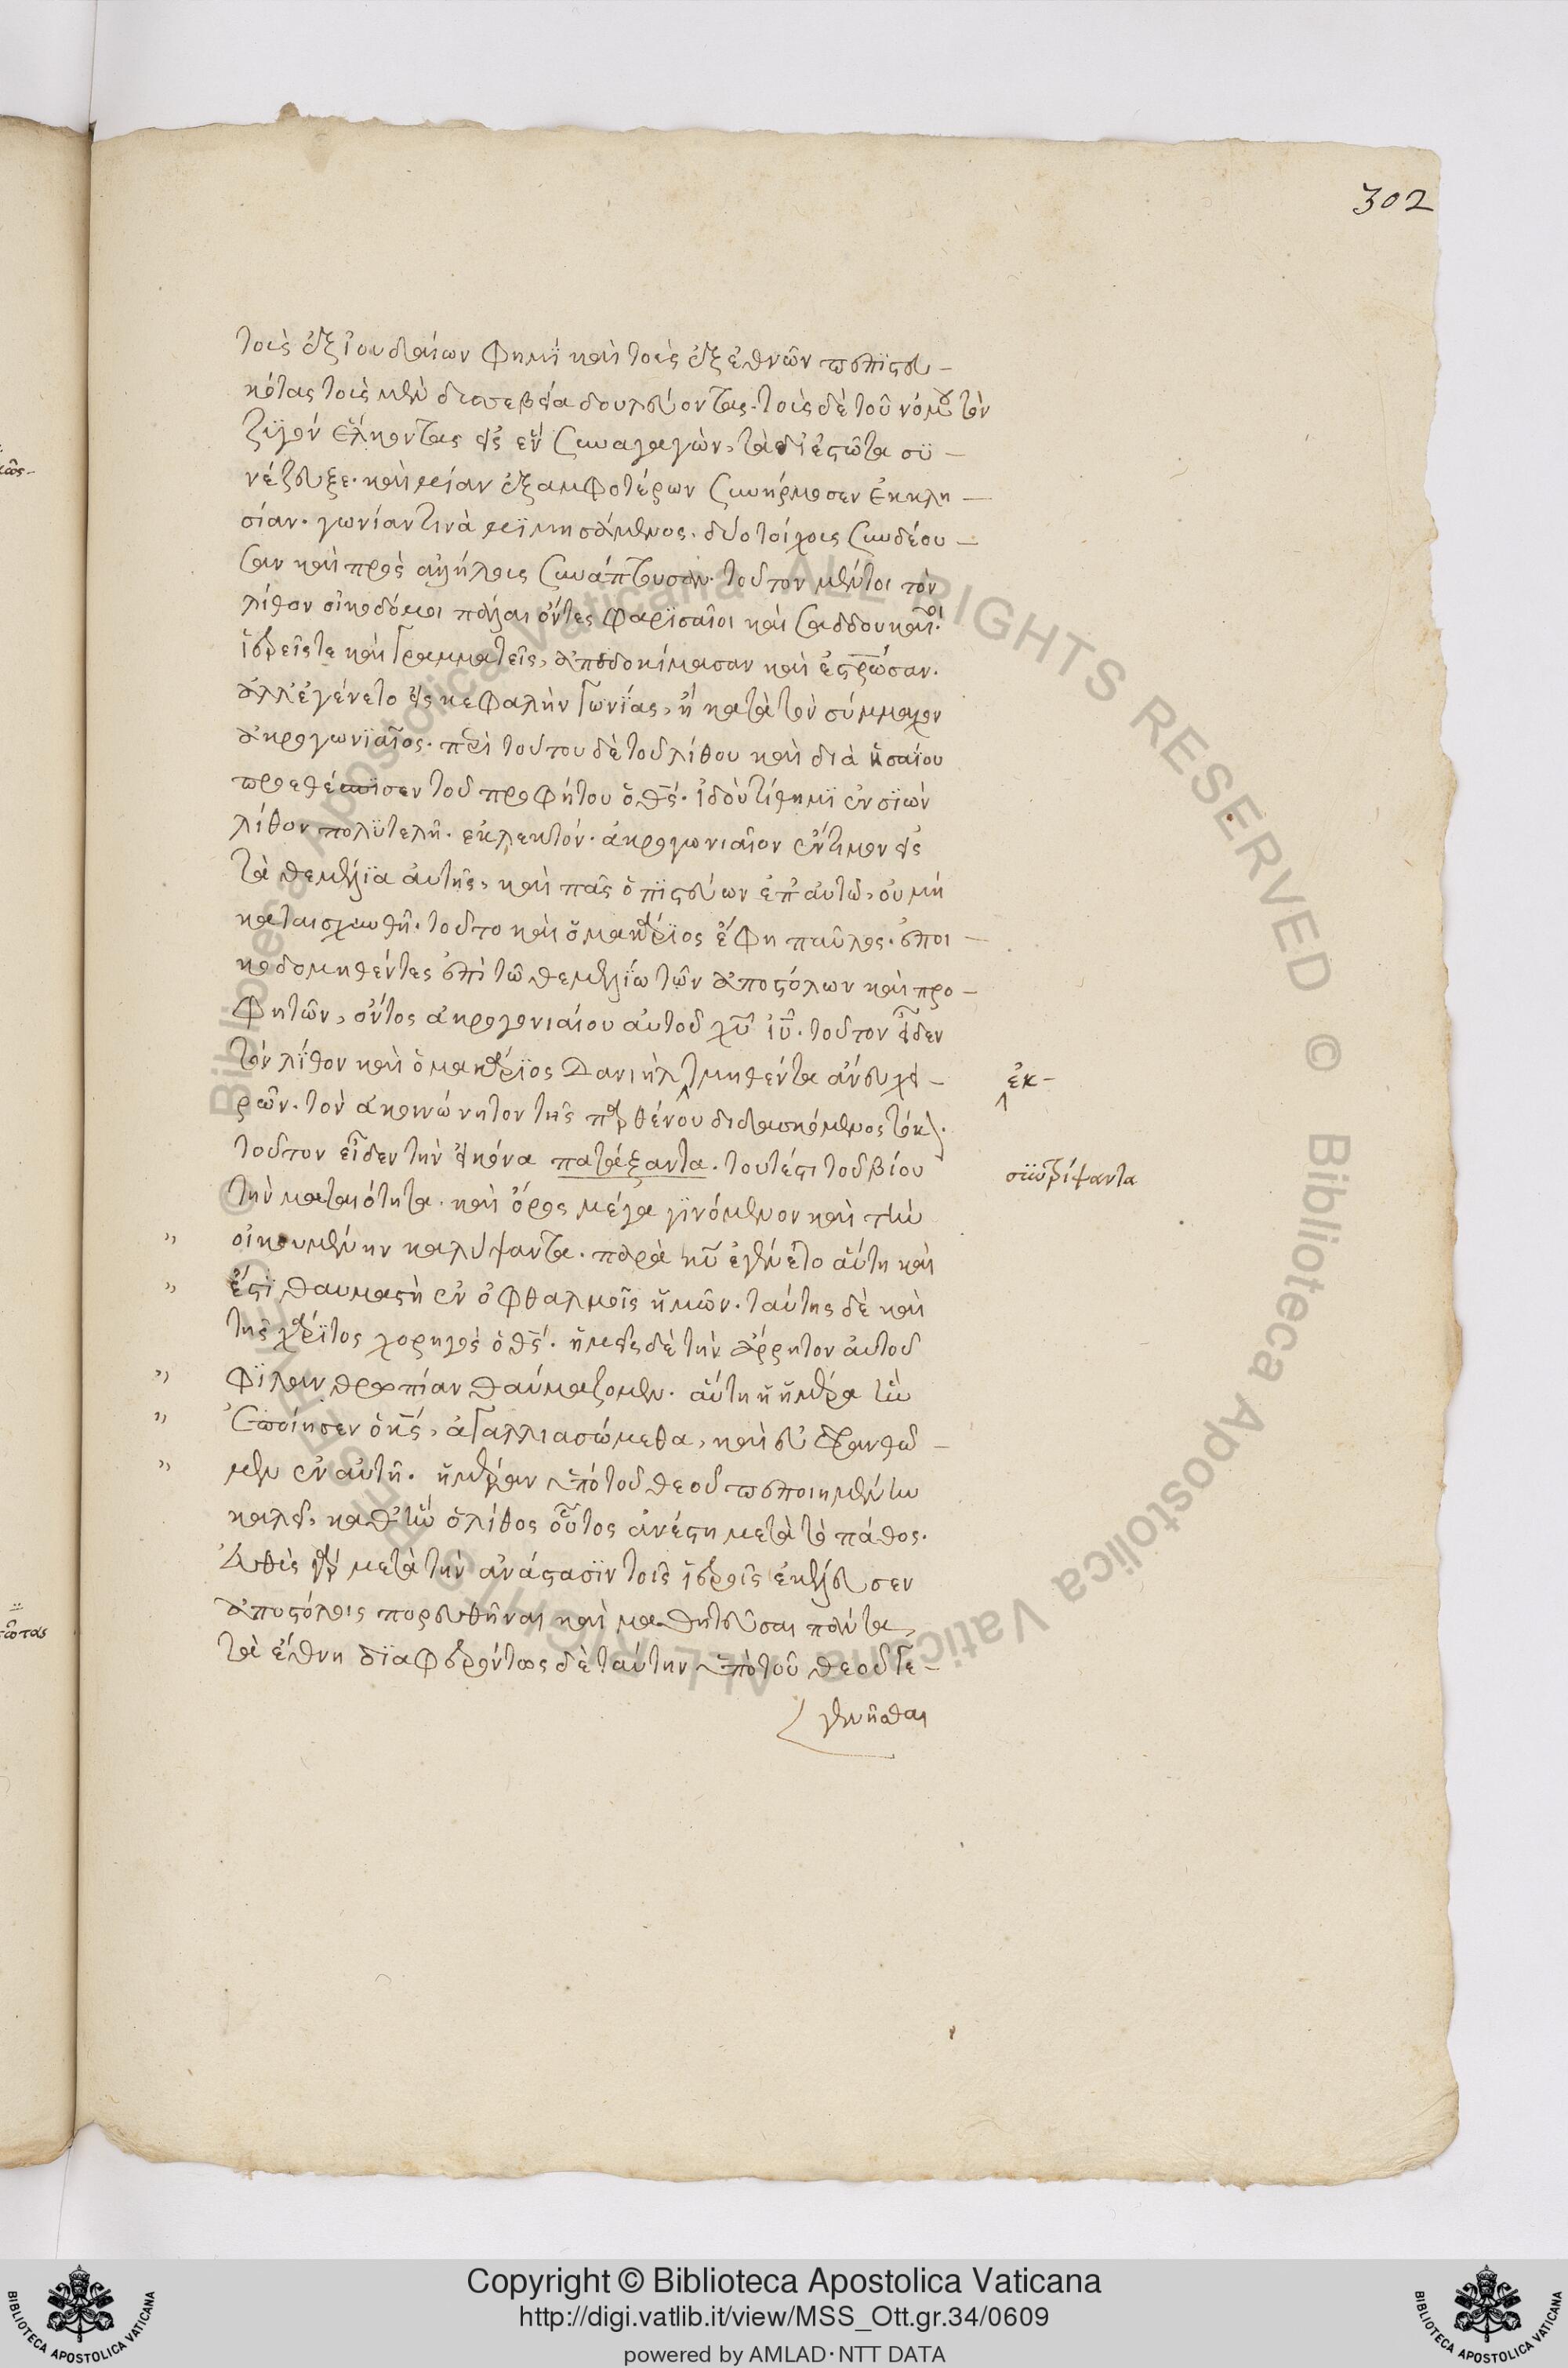 302
τοὺς ἐξ ἰουδαίων φημῒ καὶ τοὺς ἐξ ἐθνῶν πεπϊστευ-
κότας τοὺς μὲν δυσσεβεία δουλεύοντας· τοὺς δὲ τοῦ νόμου τὸν
ζϋγὸν ἕλκοντας εἰς ἓν συναγαγὼν, τὰ διεστῶτα σϋ-
νέζευξε· καὶ μίαν ἐξ ἀμφοτέρων συνήρμοσεν ἐκκλη-
σίαν· γωνίαν τινὰ μϊμησάμενος· δύο τοίχους συνδέου-
σαν καὶ πρὸς ἀλλήλους συνάπτουσαν· τοῦτον μέντοι τὸν
λίθον οἰκοδόμοι πάλαι ὄντες φαρϊσαῖοι καὶ σαδδουκαῖοι·
ἱερεῖς τε καὶ γραμματεῖς, ἀπεδοκίμασαν καὶ ἐστρωσαν·
ἀλλ' ἐγένετο εἰς κεφαλὴν γωνίας, ἢ κατὰ τὸν σύμμαχον
ἀκρογωνϊαῖος· περὶ τούτου δὲ τοῦ λίθου καὶ διὰ ἡσαΐου
προεθέσπϊσεν τοῦ προφήτου ὁ θς· ἰδοὺ τίθημϊ ἐν σϊὼν
λίθον πολϋτελῆ· ἐκλεκτόν· ἀκρογωνιαῖον ἔντιμον εἰς
τὰ θεμέλϊα αὐτῆς, καὶ πᾶς ὁ πϊστεύων ἐπ' αὐτῶ, οὐ μὴ
καταισχυνθῆ· τοῦτο καὶ ὁ μακάρϊος ἔφη παῦλος· ἐποι-
κοδομηθέντες ἐπὶ τῶ θεμελίω τῶν ἀποστόλων καὶ προ-
φητῶν, ὄντος ἀκρογονιαίου αὐτοῦ χυ ιυ· τοῦτον εἶδεν
τὸν λίθον καὶ ὁ μακάρϊος Δανιὴλ τμηθέντα ἄνευ χει-
ρῶν· τὸν ἀκοινώνητον τῆς παρθένου διδασκόμενος τόκον·
ἐκ-
τοῦτον εἶδεν τὴν εἰκόνα πατάξαντα· τουτέστι τοῦ βίου
σϋντρίψαντα
τὴν ματαιότητα· καὶ ὄρος μέγα γϊνόμενον καὶ τὴν
οἰκουμένην καλύψαντα· παρὰ κυ ἐγένετο αὕτη καὶ
ἔστϊ θαυμαστὴ ἐν ὀφθαλμοῖς ἡμῶν· ταύτης δὲ καὶ
τῆς χάρϊτος χορηγὸς ὁ θς· ἡμεῖς δὲ τὴν ἄρρητον αὐτοῦ
φϊλανθρωπίαν θαυμάζομεν· αὕτη ἡ ἡμέρα ἣν
ἐποίησεν ὁ κς, ἀγαλλιασώμεθα, καὶ εὐφρανθῶ-
μεν ἐν αὐτῆ· ἡμέραν ὑπὸ τοῦ θεοῦ πεποιημένην
καλεῖ, καθ' ἣν ὁ λίθος οὗτος ἀνέστη μετὰ τὸ πάθος·
Εὐθὺς γὰρ μετὰ τὴν ἀνάστασϊν τοῖς ἱεροῖς ἐκέλευσεν
ἀποστόλοις πορευθῆναι καὶ μαθητεῦσαι πάντα
τὰ ἔθνη δϊαφερόντως δὲ ταύτην ὑπὸ τοῦ θεοῦ γε-
γενῆσθαι
Copyright © Biblioteca Apostolica Vaticana
http://digi.vatlib.it/view/MSS_Ott.gr.34/0609
powered by AMLAD·NTT DATA